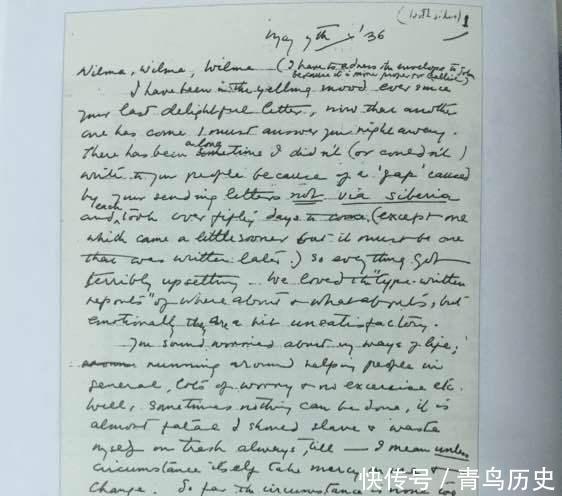 (both sides) 1
May 7th '36
Wilma, Wilma, Wilma (I have to adress the envelope to John
because it is more proper or
I have been in the yelling mood ever since
your last delightful letter, now that another
one has come I must answer you right away.
There has been along sometime I didn't (or couldn't)
write to you people because of a 'gap' caused
by your sending letters not via Siberia
and each took over fifty days to come, (except one
which came a little sooner but it must be one
that was written later.) So everything got
terribly upsetting. We loved the "type-written
reports" of where abouts & what abouts, but
emotionally they are a bit unsatisfactory.
You sound worried about my ways of life;
running around helping people in
general, lots of worry & no excercise etc.
Well, sometimes nothing can be done, it is
almost fatal I should slave & waste
myself on trash always, till — I mean unless
circumstance itself take mercy
change. So far the circumstance none too
快传号 / 青鸟历史